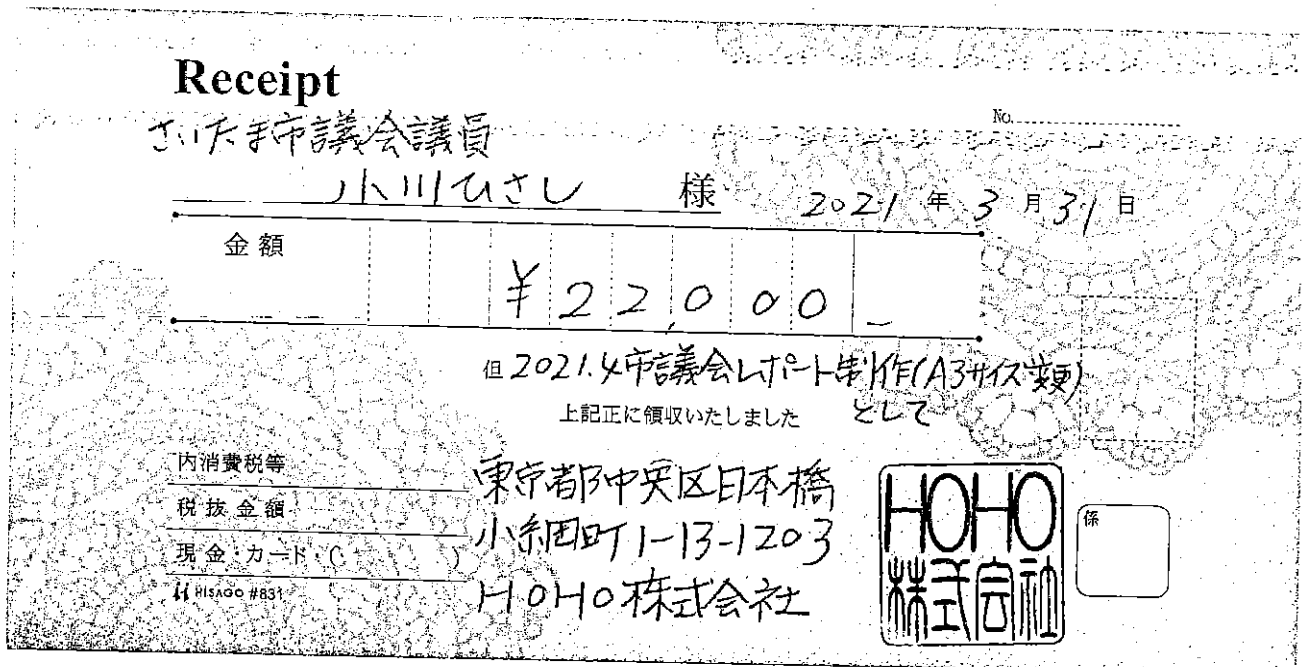 Receipt
No.
さいたま市議会議員
小川ひさし 様
2021年3月31日
金額
¥22,000-
但 2021.4市議会レポート制作(A3サイズ変更)
上記正に領収いたしました として
内消費税等
税抜金額
現金・カード・( )
HISAGO #831
東京都中央区日本橋
小網町1-13-1203
HOHO株式会社
HOHO
株式会社
係